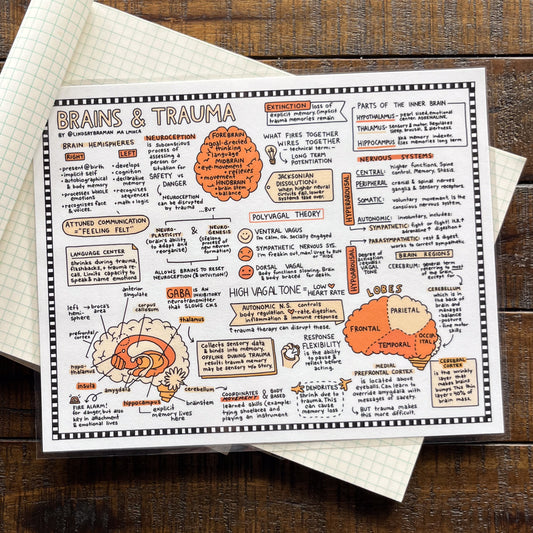 BRAINS & TRAUMA
BY @LINDSAYBRAMAN MA LMHCA
BRAIN HEMISPHERES
RIGHT
• present @ birth
• implicit self
• autobiographical
& body memory
• processes lower
emotions
• recognises face
& voices.
LEFT
• develops
• cognition
• declarative
memory
• recognises
sequences
• math + logic
NEUROCEPTION
is Subconscious
process of
assessing a
person or
situation for
SAFETY vs
DANGER
NEUROCEPTION
can be disrupted
by trauma ....But
FOREBRAIN
• goal-directed
• thinking
• language
MIDBRAIN
• eye movement
• reflexes
• movement
HINDBRAIN
• brain stem
• balance
EXTINCTION
loss of
explicit memory. (implicit
trauma memories remain
WHAT FIRES TOGETHER
WIRES TOGETHER
– technical term: –
LONG TERM
POTENTIATION
JACKSONIAN
DISSOLUTION=
when higher neural
circuits fail, lower
systems take over.
PARTS OF THE INNER BRAIN
HYPOTHALAMUS-
THALAMUS-
Sensory & motor. Regulates
sleep, arousal, & alertness.
HIPPOCAMPUS
NERVOUS SYSTEMS
CENTRAL:
higher functions, Spine
control, Memory, Stasis.
PERIPHERAL
cranial & spinal nerves
ganglia & sensory receptors.
SOMATIC:
voluntary movement is the
conscious nervous system.
AUTONOMIC:
involuntary, includes:
SYMPATHETIC:
fight or flight! H.R.↑
adrenaline↑ digestion↓
PARASYMPATHETIC:
rest & digest
works to correct sympathetic
HYPERAROUSAL
HYPOAROUSAL
ATTUNED COMMUNICATION
= "FEELING FELT"
NEURO-
PLASTICITY
(brain's ability
to adapt and
reorganise)
&
NEURO-
GENESIS
(lifelong
process of
new neuron
formation)
ALLOWS BRAINS TO RESET
NEUROCEPTION (& INTUITION!)
LANGUAGE CENTER
shrinks during trauma,
flashbacks, + trauma re-
call. Limits capacity to
speak & name emotions
POLYVAGAL THEORY
VENTRAL VAGUS
I'm calm, Ok, Socially engaged
SYMPATHETIC NERVOUS SYS.
DORSAL VAGAL
Body functions slowing, Brain
& body braced for death.
HIGH VAGAL TONE =
LOW
HEART RATE
Degree of
activation
equates
VAGAL
TONE
BRAIN REGIONS
CEREBRUM:
general term
referring to most
of the brain,
except for
CEREBELLUM
which is in
the back of
brain and
manages
• balance
• posture
• fine motor
skills
LOBES
FRONTAL
PARIETAL
TEMPORAL
OCCIP
ITAL
CEREBRAL
CORTEX
is the wrinkly
layer that
makes brains
bumpy. This thin
layer = 40% of
brain mass.
AUTONOMIC N.S. controls
body regulation. ♥rate, digestion,
inflammation & immune response
↑ trauma therapy can disrupt these.
GABA IS AN
INHIBITORY
neurotransmitter
that slows CNS
left
hemi-
sphere
broca's
area
anterior
singulate
corpus
callosum
prefrontal
cortex
thalamus
hypo-
thalamus
insula
amygdala
hippo-
campus
cerebellum
brainstem
Collects sensory data
& binds into memory.
OFFLINE DURING TRAUMA
results: trauma memory
may be sensory w/o story.
RESPONSE
FLEXIBILITY
is the ability
to pause &
reflect before
acting.
MEDIAL
PREFRONTAL CORTEX
is located above
eyeballs. Can learn to
override amygdala with
messages of safety.
BUT trauma makes
this more difficult.
FIRE ALARM!
for danger, but also
key in attachment
& emotional lives
explicit
memories lives
here
COORDINATES
MOVEMENTS
& BODY
BASED
learned skills (example:
tying shoelaces and
playing an instrument
DENDRITES
shrink due to
trauma. This
can cause
memory loss